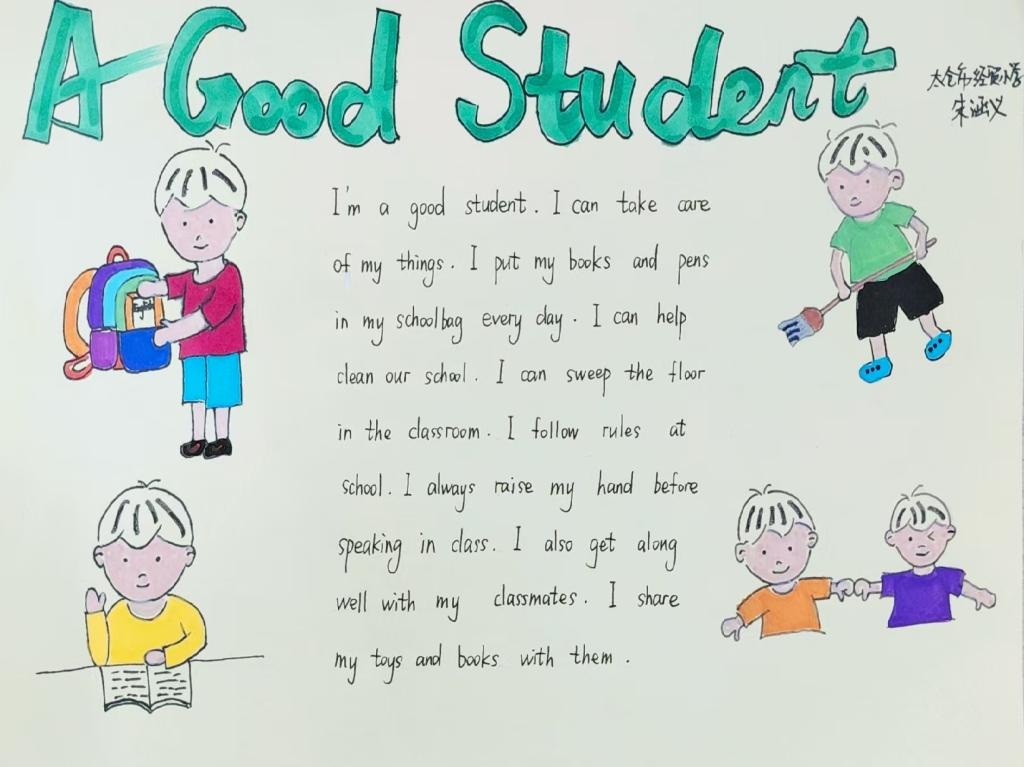 A Good Student
太仓市经贸小学
朱涵义
English
I'm a good student. I can take care
of my things. I put my books and pens
in my schoolbag every day. I can help
clean our school. I can sweep the floor
in the classroom. I follow rules at
school. I always raise my hand before
speaking in class. I also get along
well with my classmates. I share
my toys and books with them.